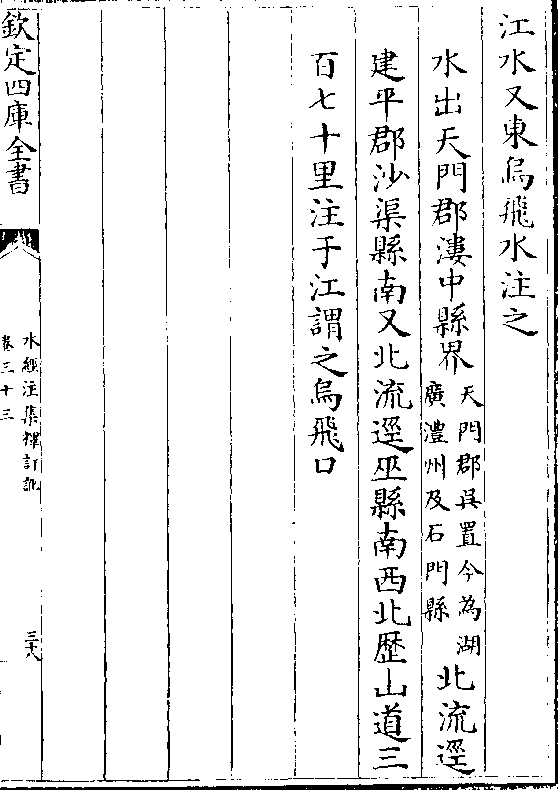 江水又東烏飛水注之
水出天門郡漊中縣界天門郡吳置今為湖
廣澧州及石門縣北流逕
建平郡沙渠縣南又北流逕巫縣南西北歷山道三
百七十里注于江謂之烏飛口
欽定四庫全書
水經注集釋訂訛
卷三十三
三六